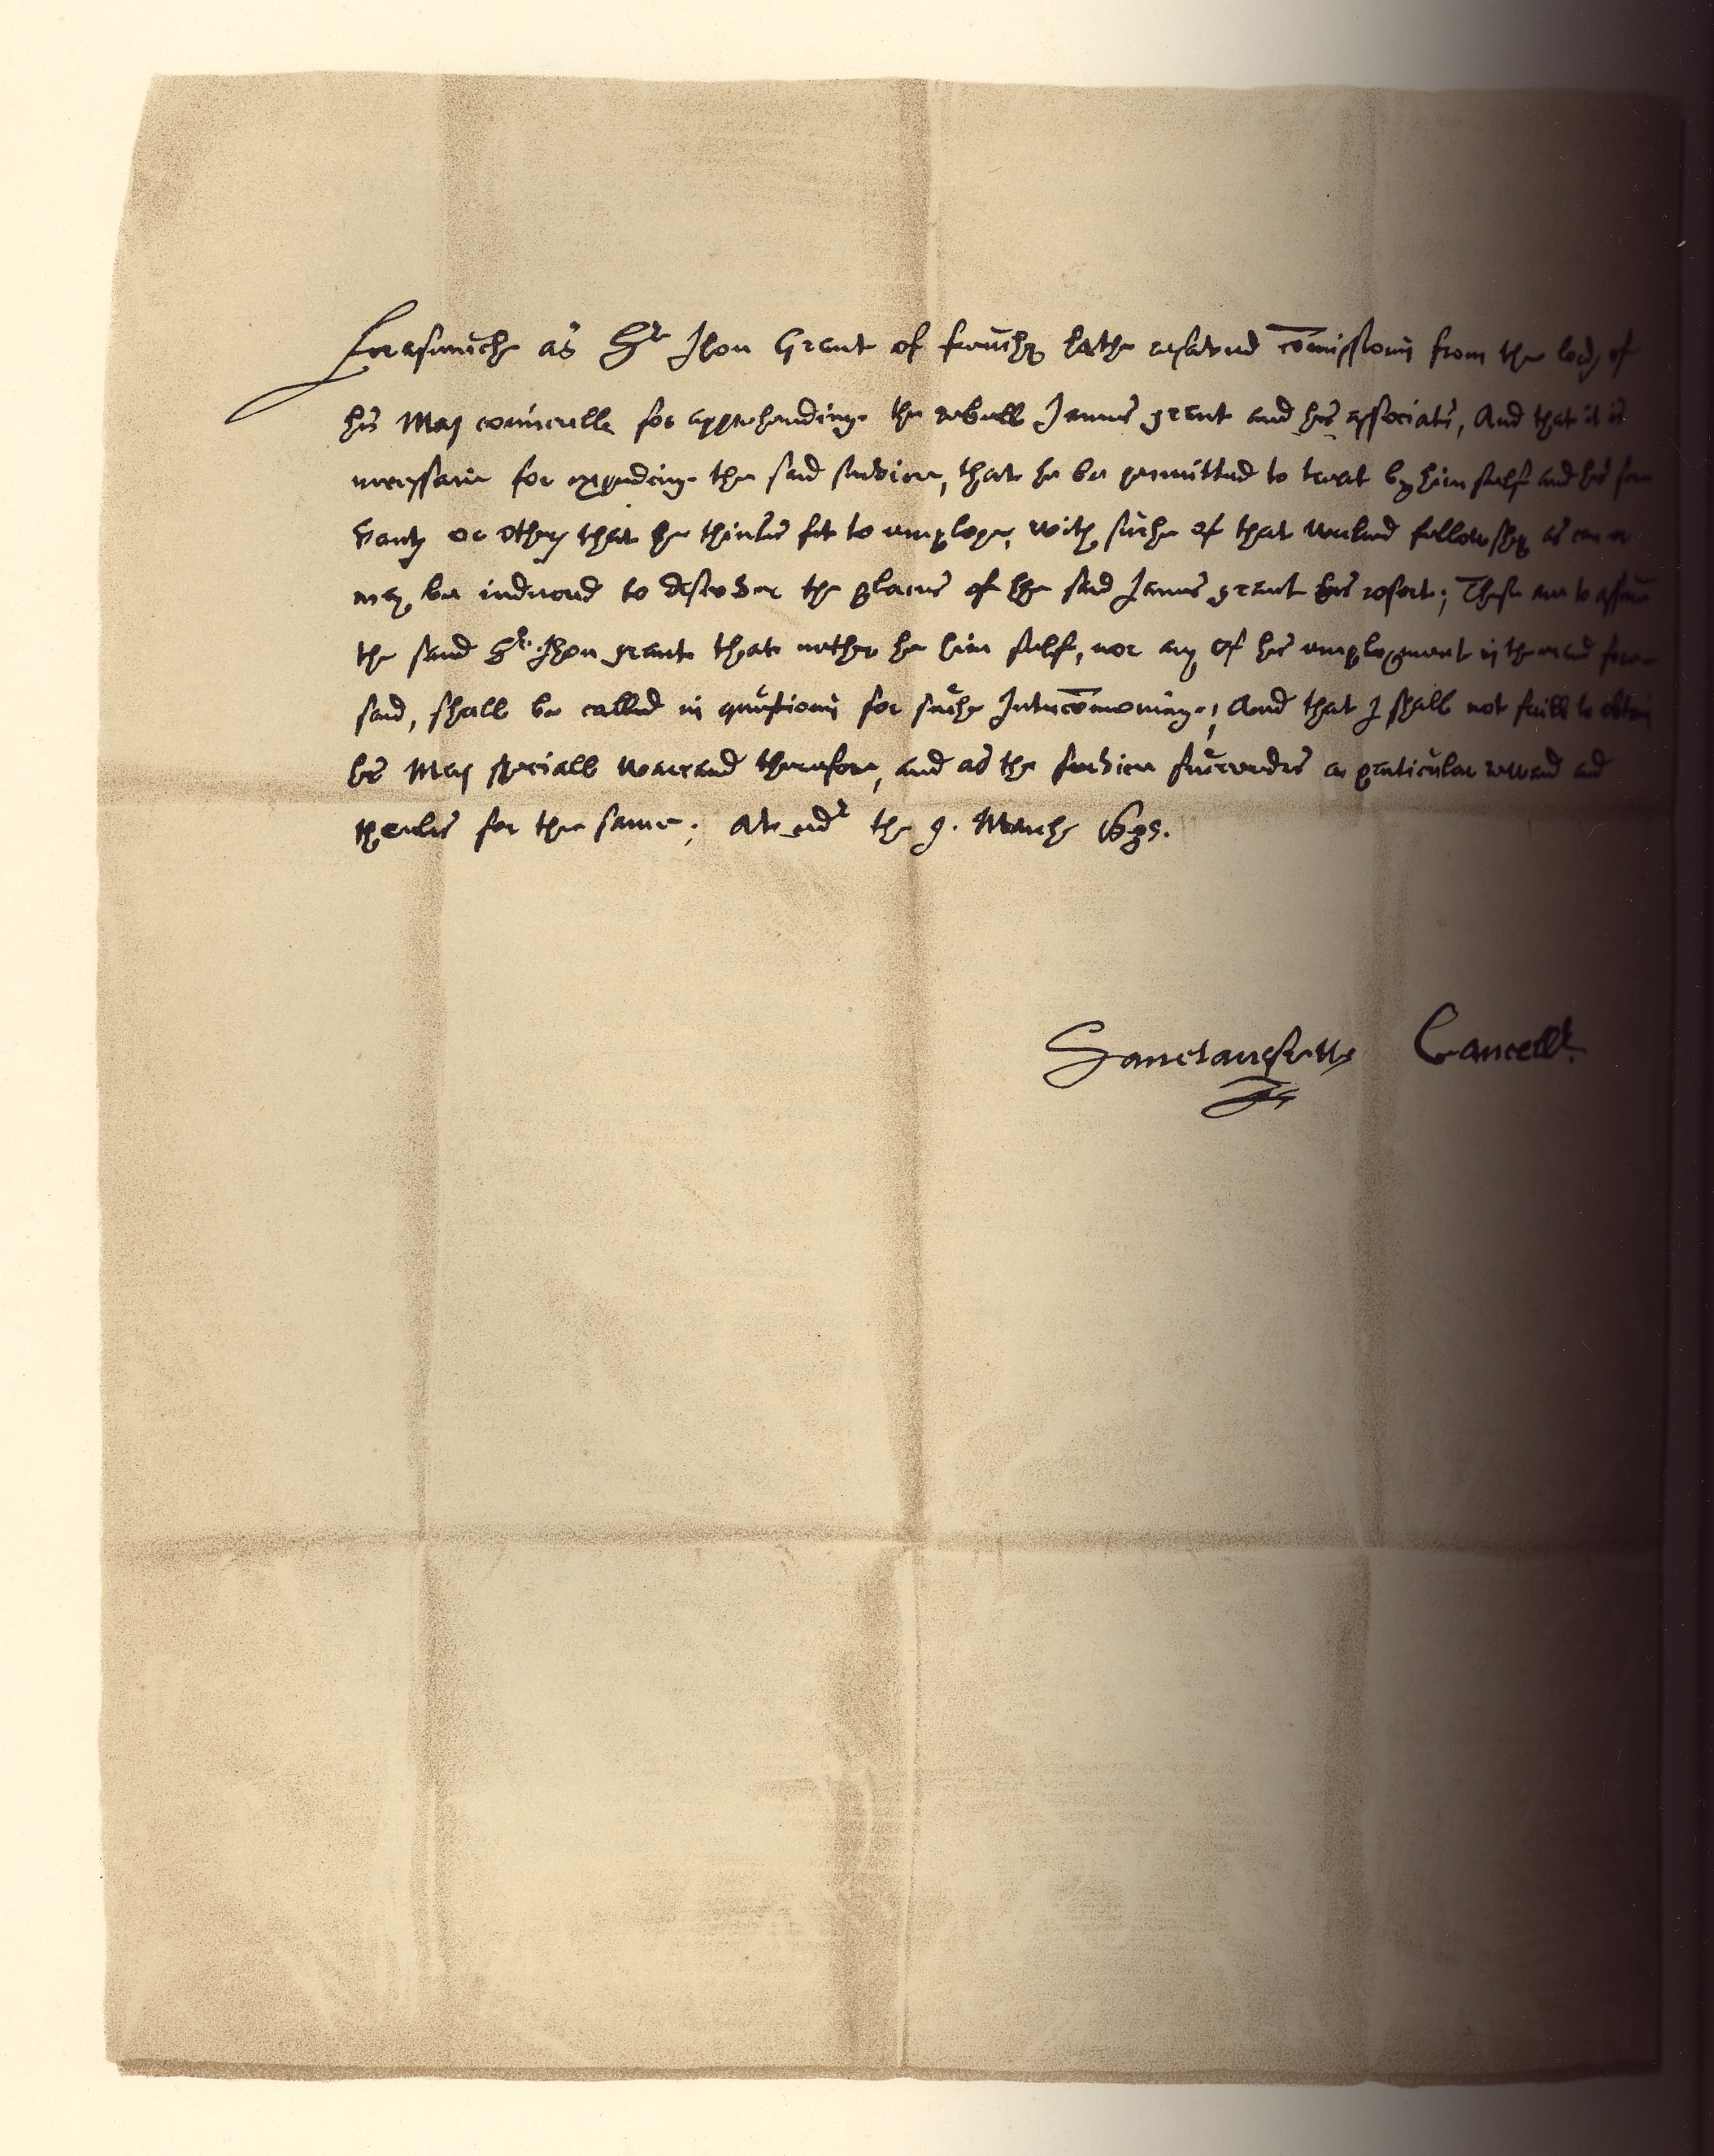 Forasmuche as Sr Jhon Grant of freuchy hathe resaved comissioun from the lords of
his Mas counselle for apprehending the rebell James grant and his associats, And that it is
necessarie for expeding the said service, that he be permitted to treat by him self and his ser
vants or others that he thinkes fit to employe, with suche of that wicked fellowshyp as can or
may be induced to discover the places of the said James grant his resort; These are to assure
the said Sr Jhon grant that nether he him self, nor any of his employment in the maner fore
said, shall be called in questioun for suche Intercomoning; And that I shall not faill to obtein
his Mas speciall warrand therefore, and as the service succeedes a particular reward and
thankes for the same; At edr the 9. Marche 1635.
Sanctandrews Cancellr.